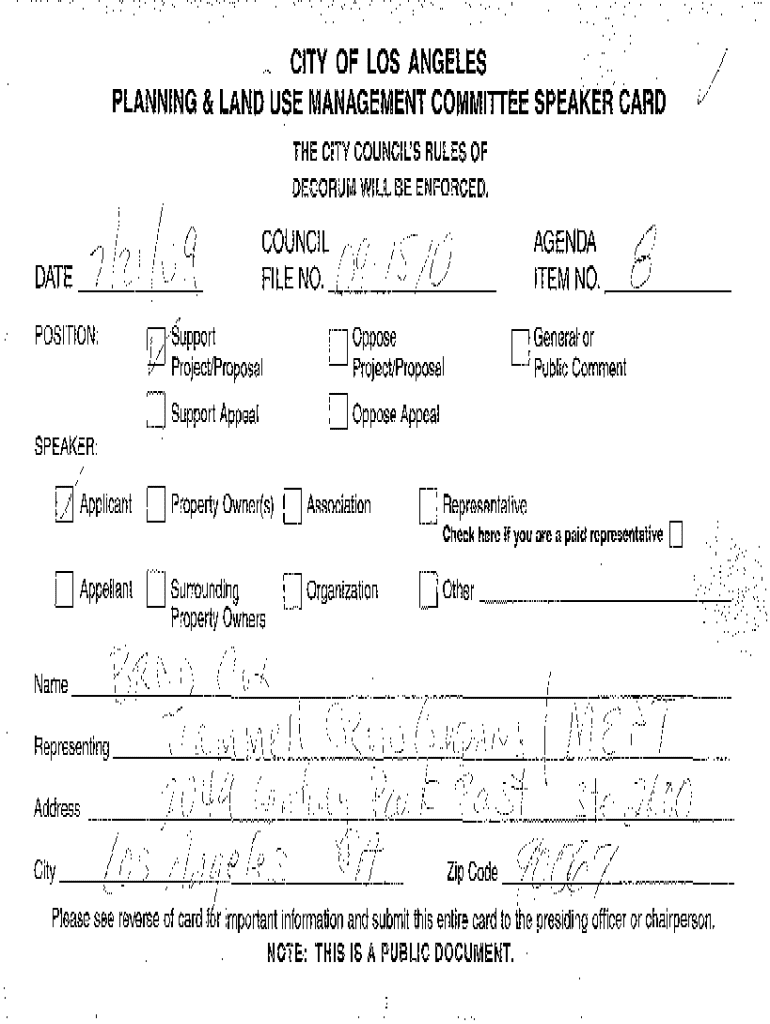 CITY OF LOS ANGELES
PLANNING & LAND USE MANAGEMENT COMMITTEE SPEAKER CARD
THE CITY COUNCIL'S RULES OF
DECORUM WILL BE ENFORCED.
DATE 7/21/09 COUNCIL FILE NO. 09-1510 AGENDA ITEM NO. 8
POSITION: Support Project/Proposal Oppose Project/Proposal General or Public Comment
Support Appeal Oppose Appeal
SPEAKER:
Applicant Property Owner(s) Association Representative
Check here if you are a paid representative
Appellant Surrounding Property Owners Organization Other
Name BRAD Cox
Representing Trammell Crow Company /
Address 2049 Century Park East Ste 2600
City Los Angeles CA Zip Code 90067
Please see reverse of card for important information and submit this entire card to the presiding officer or chairperson.
NOTE: THIS IS A PUBLIC DOCUMENT.